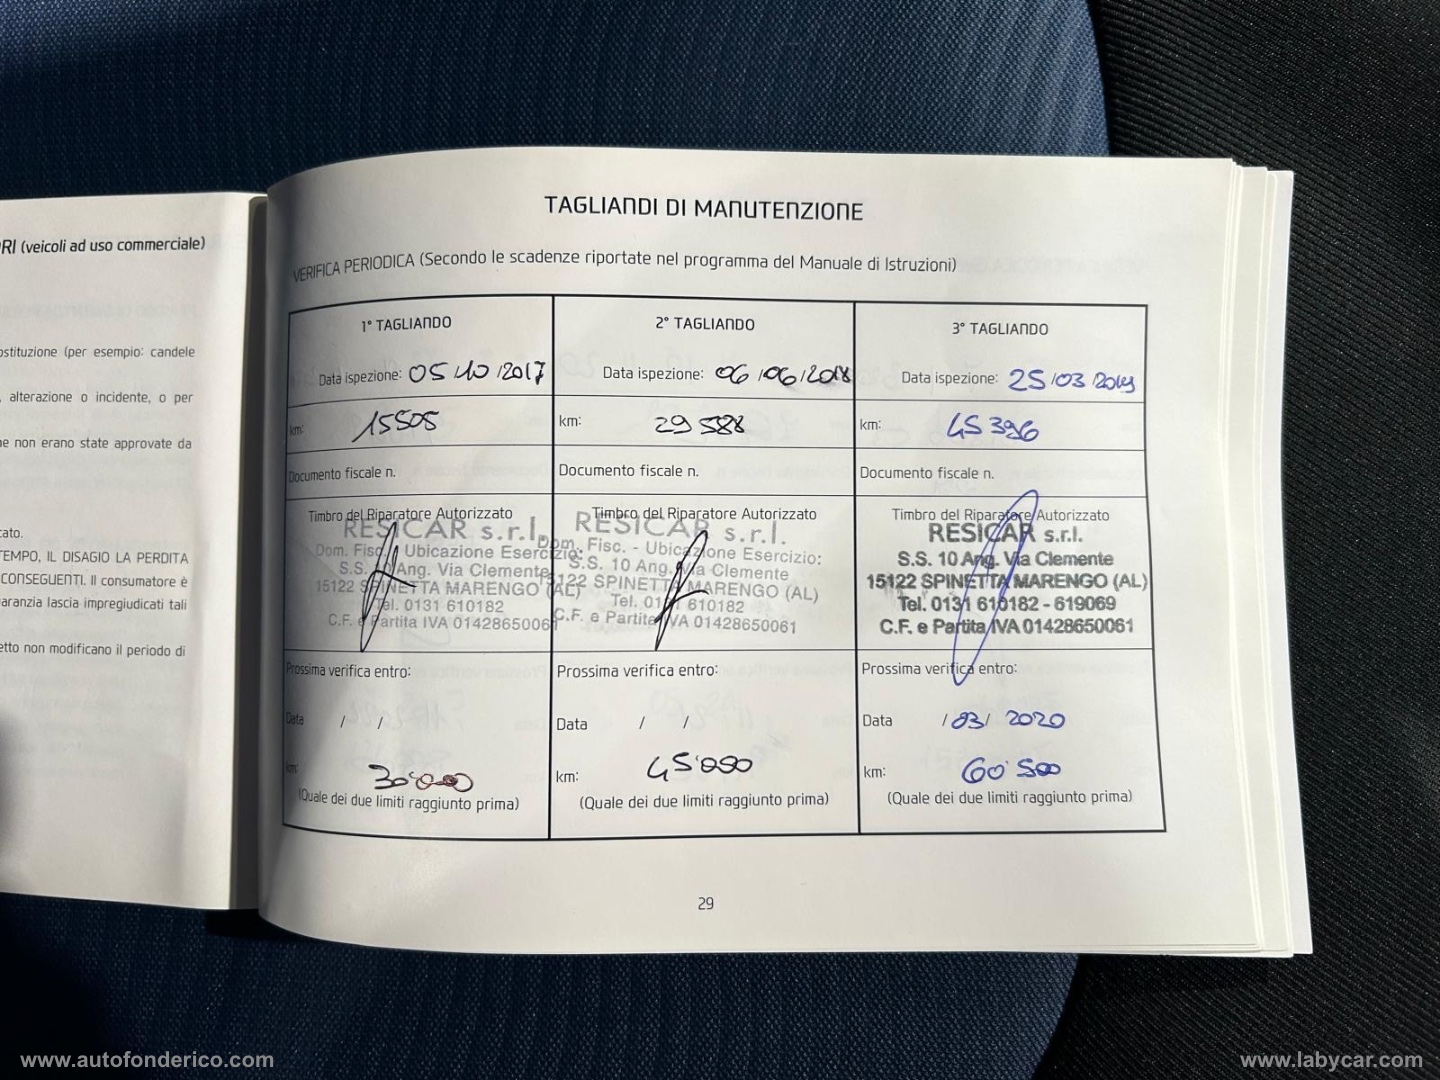 ORI (veicoli ad uso commerciale)
ostituzione (per esempio: candele
, alterazione o incidente, o per
ne non erano state approvate da
cato.
TEMPO, IL DISAGIO LA PERDITA
CONSEGUENTI. Il consumatore è
aranzia lascia impregiudicati tali
etto non modificano il periodo di
TAGLIANDI DI MANUTENZIONE
VERIFICA PERIODICA (Secondo le scadenze riportate nel programma del Manuale di Istruzioni)
1° TAGLIANDO
Data ispezione: 05/10/2017
km: 15505
Documento fiscale n.
Timbro del Riparatore Autorizzato
RESICAR s.r.l.
Dom. Fisc. - Ubicazione Esercizio:
S.S. 10 Ang. Via Clemente
15122 SPINETTA MARENGO (AL)
Tel. 0131 610182
C.F. e Partita IVA 01428650061
Prossima verifica entro:
Data / /
km: 30'000
(Quale dei due limiti raggiunto prima)
2° TAGLIANDO
Data ispezione: 06/06/2018
km: 29588
Documento fiscale n.
Timbro del Riparatore Autorizzato
RESICAR s.r.l.
Dom. Fisc. - Ubicazione Esercizio:
S.S. 10 Ang. Via Clemente
15122 SPINETTA MARENGO (AL)
Tel. 0131 610182
C.F. e Partita IVA 01428650061
Prossima verifica entro:
Data / /
km: 45'000
(Quale dei due limiti raggiunto prima)
3° TAGLIANDO
Data ispezione: 25/03/2019
km: 45396
Documento fiscale n.
Timbro del Riparatore Autorizzato
RESICAR s.r.l.
S.S. 10 Ang. Via Clemente
15122 SPINETTA MARENGO (AL)
Tel. 0131 610182 - 619069
C.F. e Partita IVA 01428650061
Prossima verifica entro:
Data /03/ 2020
km: 60'500
(Quale dei due limiti raggiunto prima)
29
www.autofonderico.com
www.labycar.com